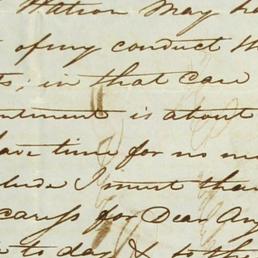 Watson May ha
of my conduct th
ts; in that case
ntment is about
have time for no mo
lude I must than
caress for Dear Au
to day & to the